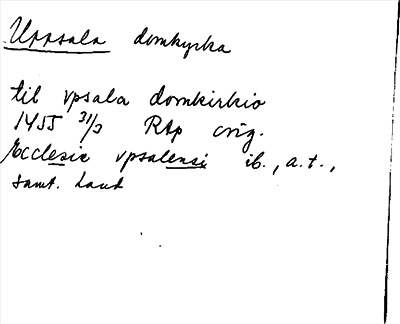 Uppsala domkyrka
til vpsala domkirkio
1455 31/3 RAp orig.
Ecclesie vpsalensi ib., a.t.,
samt. hand